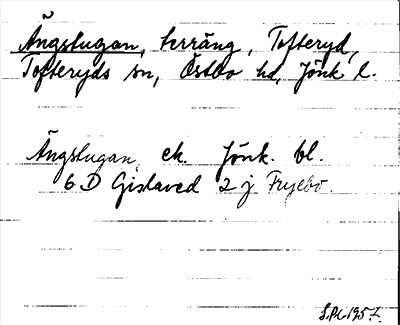 Ängstugan, terräng, Tofteryd,
Tofteryds sn, Östbo hd, Jönk l.
Ängstugan, ek. Jönk. bl.
6 D Gislaved 2 j Fryebo.